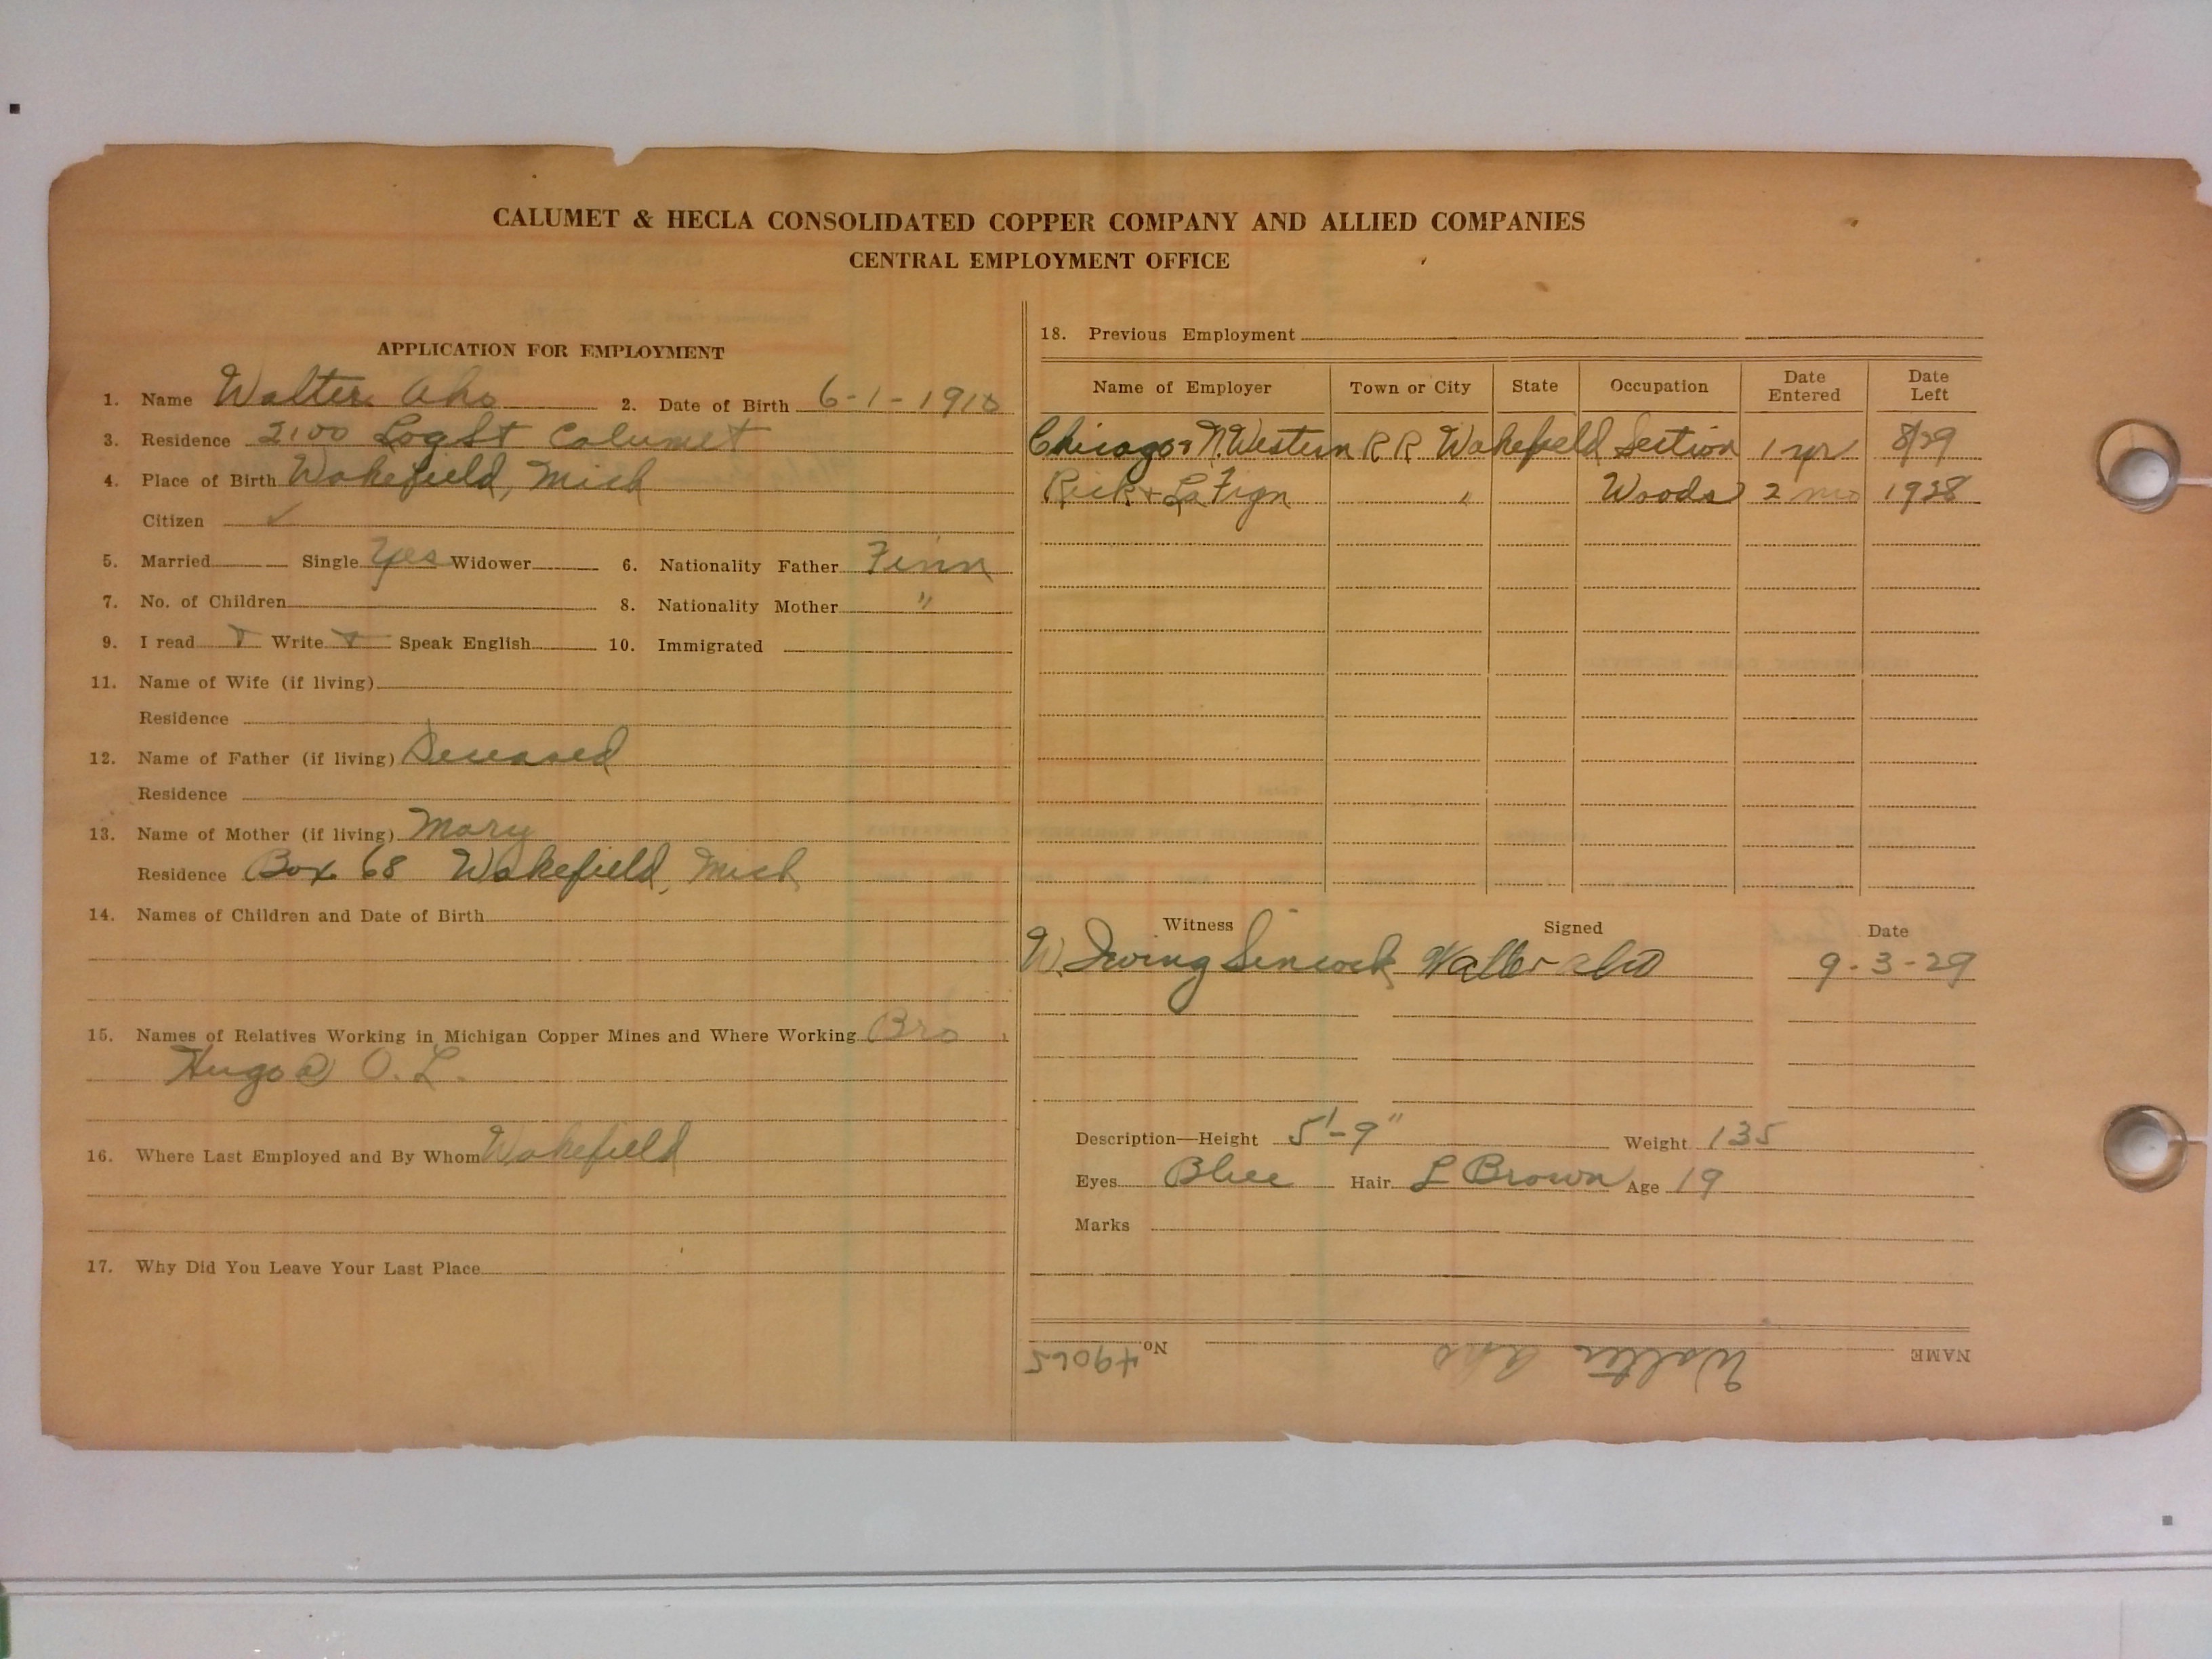 CALUMET & HECLA CONSOLIDATED COPPER COMPANY AND ALLIED COMPANIES
CENTRAL EMPLOYMENT OFFICE
APPLICATION FOR EMPLOYMENT
1. Name Walter Aho 2. Date of Birth 6-1-1910
3. Residence 2100 Log St Calumet
4. Place of Birth Wakefield, Mich
Citizen ✓
5. Married Single Yes Widower 6. Nationality Father Finn
7. No. of Children 8. Nationality Mother "
9. I read Write Speak English 10. Immigrated
11. Name of Wife (if living)
Residence
12. Name of Father (if living) Deceased
Residence
13. Name of Mother (if living) Mary
Residence Box 68 Wakefield, Mich
14. Names of Children and Date of Birth
15. Names of Relatives Working in Michigan Copper Mines and Where Working Bro
Hugo @ O. L.
16. Where Last Employed and By Whom Wakefield
17. Why Did You Leave Your Last Place
18. Previous Employment
Name of Employer Town or City State Occupation Date Entered Date Left
Chicago & N. Western R R Wakefield Section 1 yr 8/29
" Woods 2 mo 1928
Witness Signed Date
W. Irving Sincock Walter Aho 9-3-29
Description—Height 5'-9" Weight 135
Eyes Blue Hair L Brown Age 19
Marks
NAME Walter Aho No. 49065